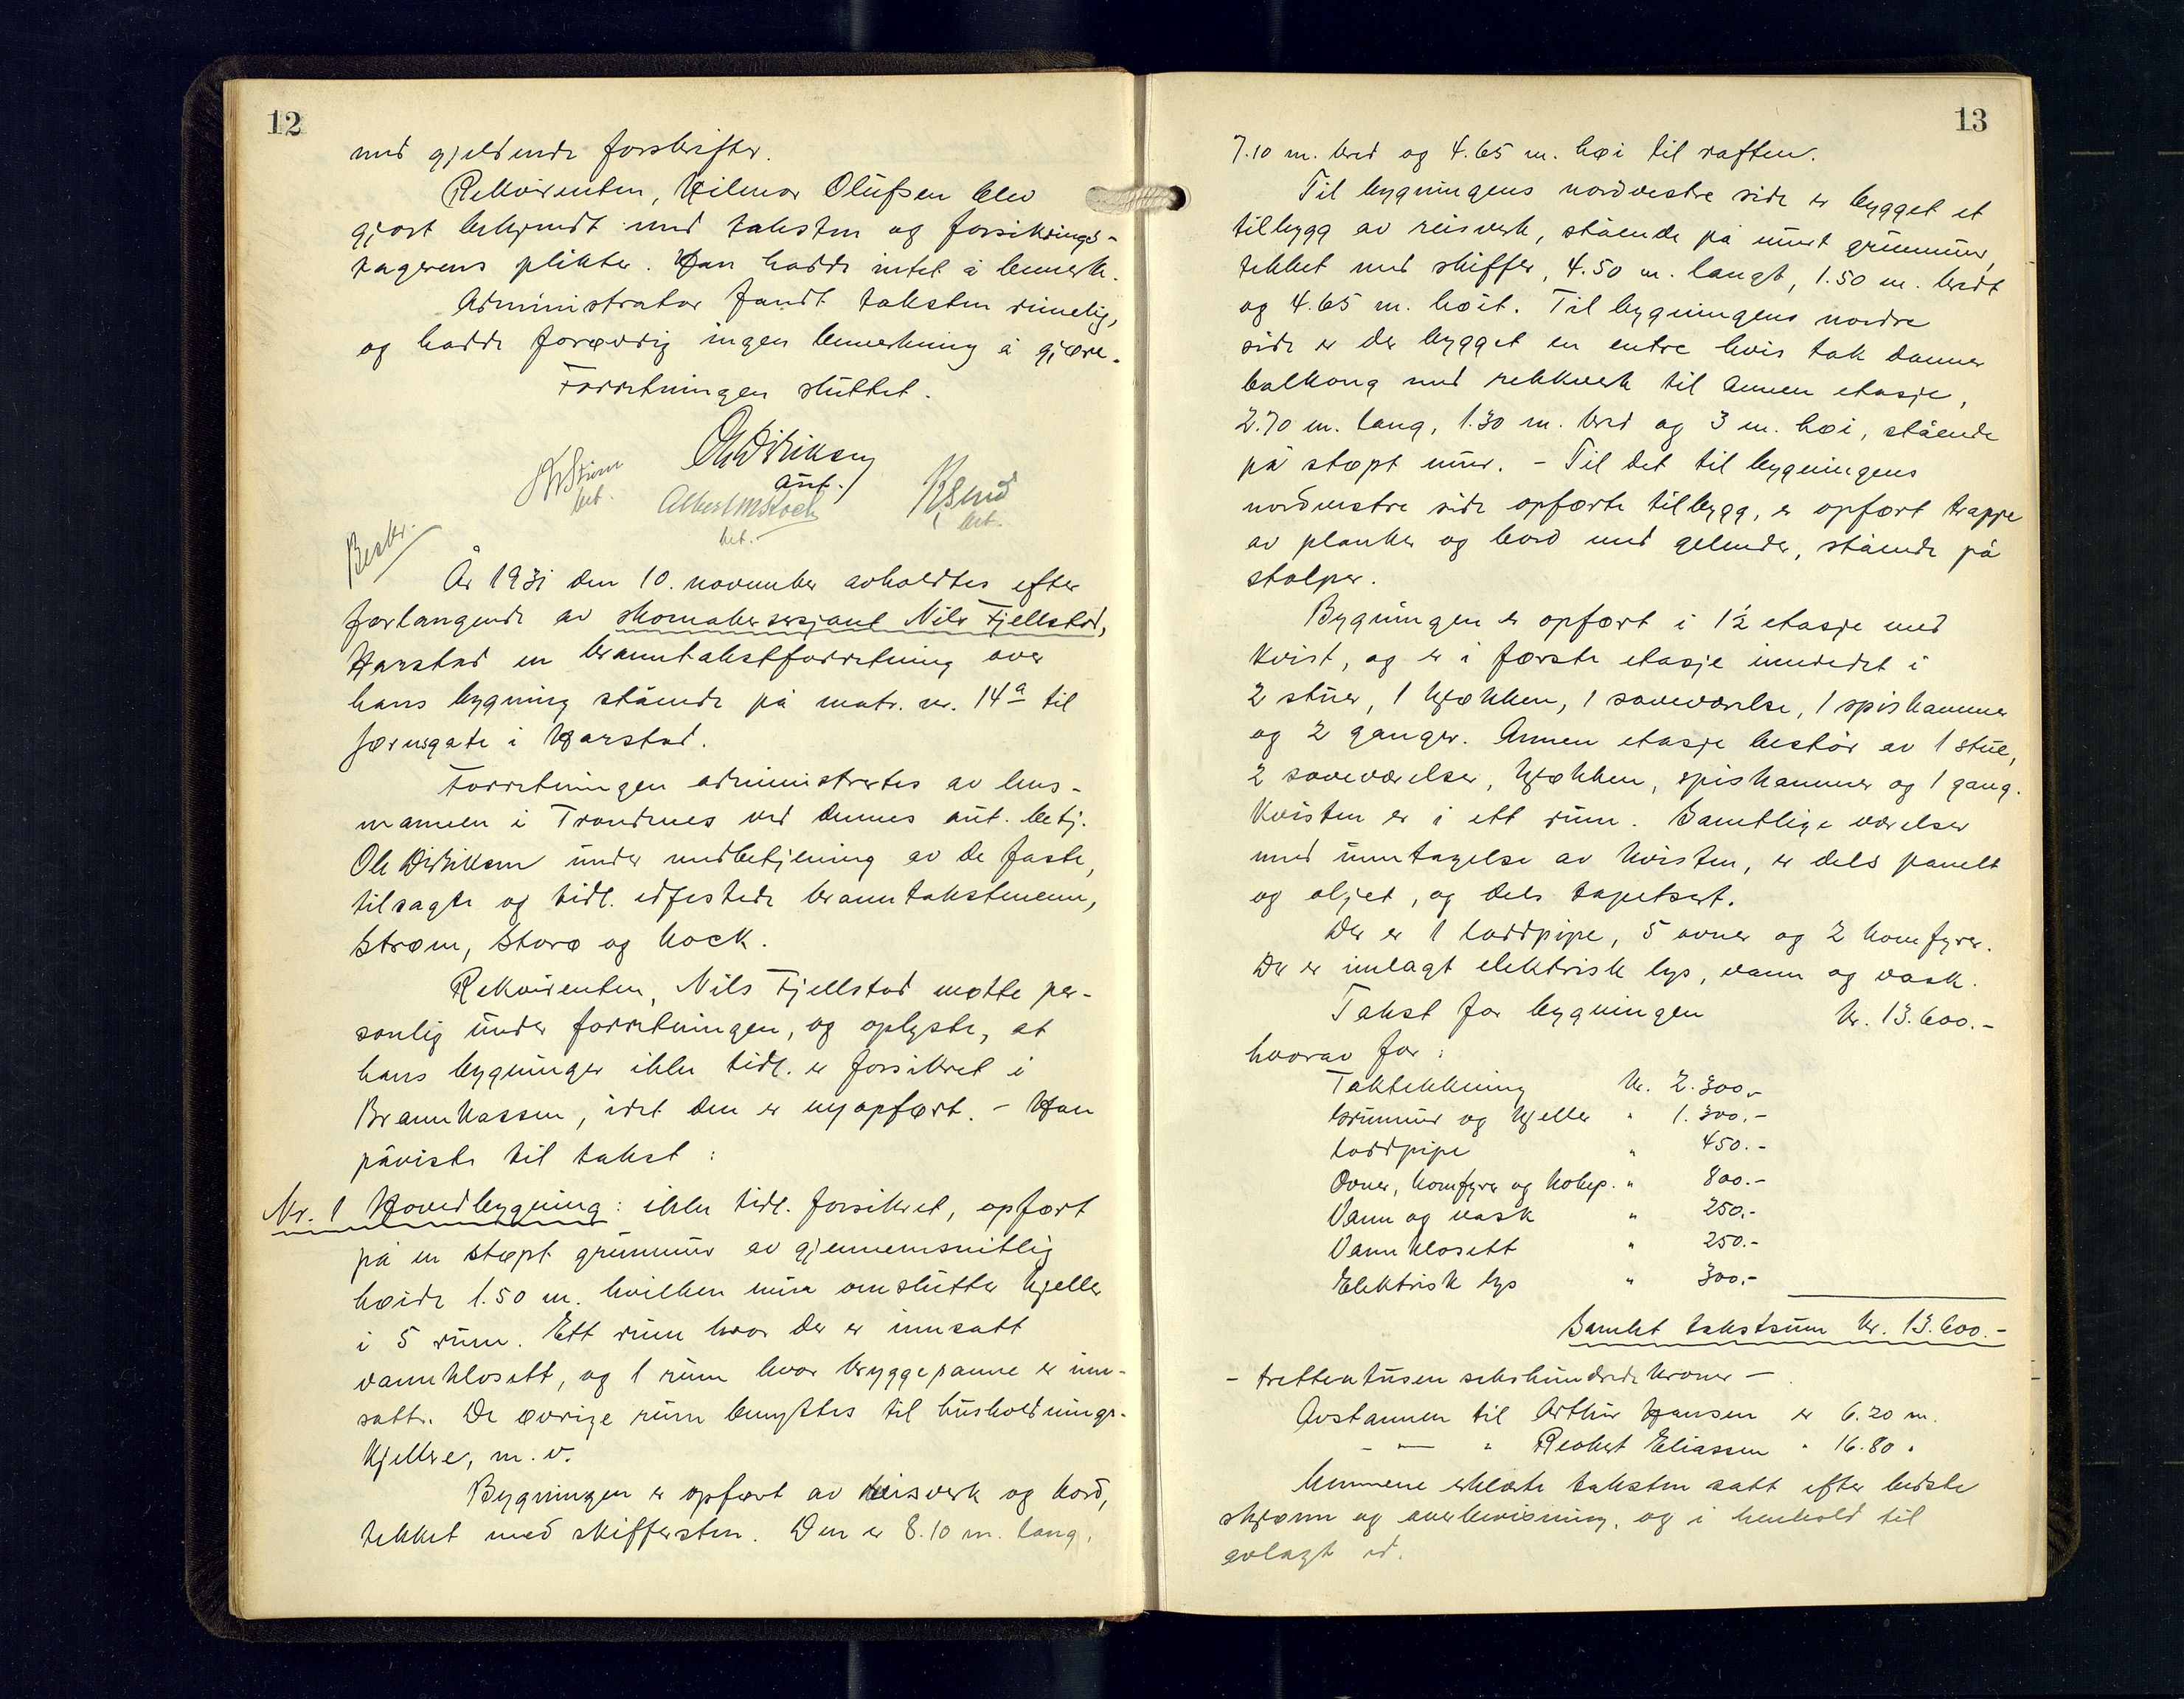 12
med gjeldende forskrifter.
Rekvirenten, Hilmar Olufsen blev
gjort bekjendt med taksten og forsikrings-
tagerens plikter. Han hadde intet å bemerk.
Administrator fandt taksten rimelig,
og hadde forøvrig ingen bemerkning å gjøre.
Forretningen sluttet.
Ole Didriksen
aut.
Strøm
bet.
Albert M Kock
bet.
bet.
Beskr.
År 1931 den 10. november avholdtes efter
forlangende av skomakersersjant Nils Fjellstad,
Harstad en branntakstforretning over
hans bygning stående på matr. nr. 14a til
i Harstad.
Forretningen administrertes av lens-
mannen i Trondenes ved dennes aut. betj.
Ole Didriksen under medbetjening av de faste,
tilsagte og tidl. edfestede branntakstmenn,
Strøm, Storø og Kock.
Rekvirenten, Nils Fjellstad møtte per-
sonlig under forretningen, og oplyste, at
hans bygninger ikke tidl. er forsikret i
Brannkassen, idet den er nyopført. - Han
påviste til takst:
Nr. 1 Hovedbygning: ikke tidl. forsikret, opført
på en støpt grunmur av gjennemsnitlig
høide 1.50 m. hvilken mur omslutter kjeller
i 5 rum. Ett rum hvor der er innsatt
vannklosett, og 1 rum hvor bryggepanne er inn-
satt. De øvrige rum benyttes til husholdnings-
kjellere, m.v.
Bygningen er opført av reisverk og bord,
tekket med skiffersten. Den er 8.10 m. lang,
13
7.10 m. bred og 4.65 m. høi til raften.
Til bygningens nordvestre side er bygget et
tilbygg av reisverk, stående på muret grunmur,
tekket med skiffer, 4.50 m. langt, 1.50 m. bredt
og 4.65 m. høit. Til bygningens nordre
side er der bygget en entre hvis tak danner
balkong med rekkverk til annen etasje,
2.70 m. lang, 1.30 m. bred og 3 m. høi, stående
på støpt mur. - Til det til bygningens
nordvestre side opførte tilbygg, er opført trappe
av planker og bord med gelender, stående på
stolper.
Bygningen er opført i 1½ etasje med
kvist, og er i første etasje innredet i
2 stuer, 1 kjøkken, 1 soveværelse, 1 spiskammer
og 2 ganger. Annen etasje består av 1 stue,
2 soveværelser, kjøkken, spiskammer og 1 gang.
Kvisten er i ett rum. Samtlige værelser
med unntagelse av kvisten, er dels panelt
og oljet, og dels tapetsert.
Der er 1 loddpipe, 5 ovner og 2 komfyrer.
Der er innlagt elektrisk lys, vann og vask.
Takst for bygningen kr. 13.600.-
hvorav for:
Taktekkning kr. 2.300.-
Grunmur og kjeller " 1.300.-
Loddpipe " 450.-
Ovner, komfyrer og kokep. " 800.-
Vann og vask " 250.-
Vannklosett " 250.-
Elektrisk lys " 300.-
Samlet takstsum kr. 13.600.-
- trettentusen sekshundrede kroner -
Avstannen til Arthur Hansen er 6.20 m.
- - " Robert Eliassen " 16.80 "
Mennene erklærte taksten satt efter bedste
skjønn og overbevisning, og i henhold til
avlagt ed.